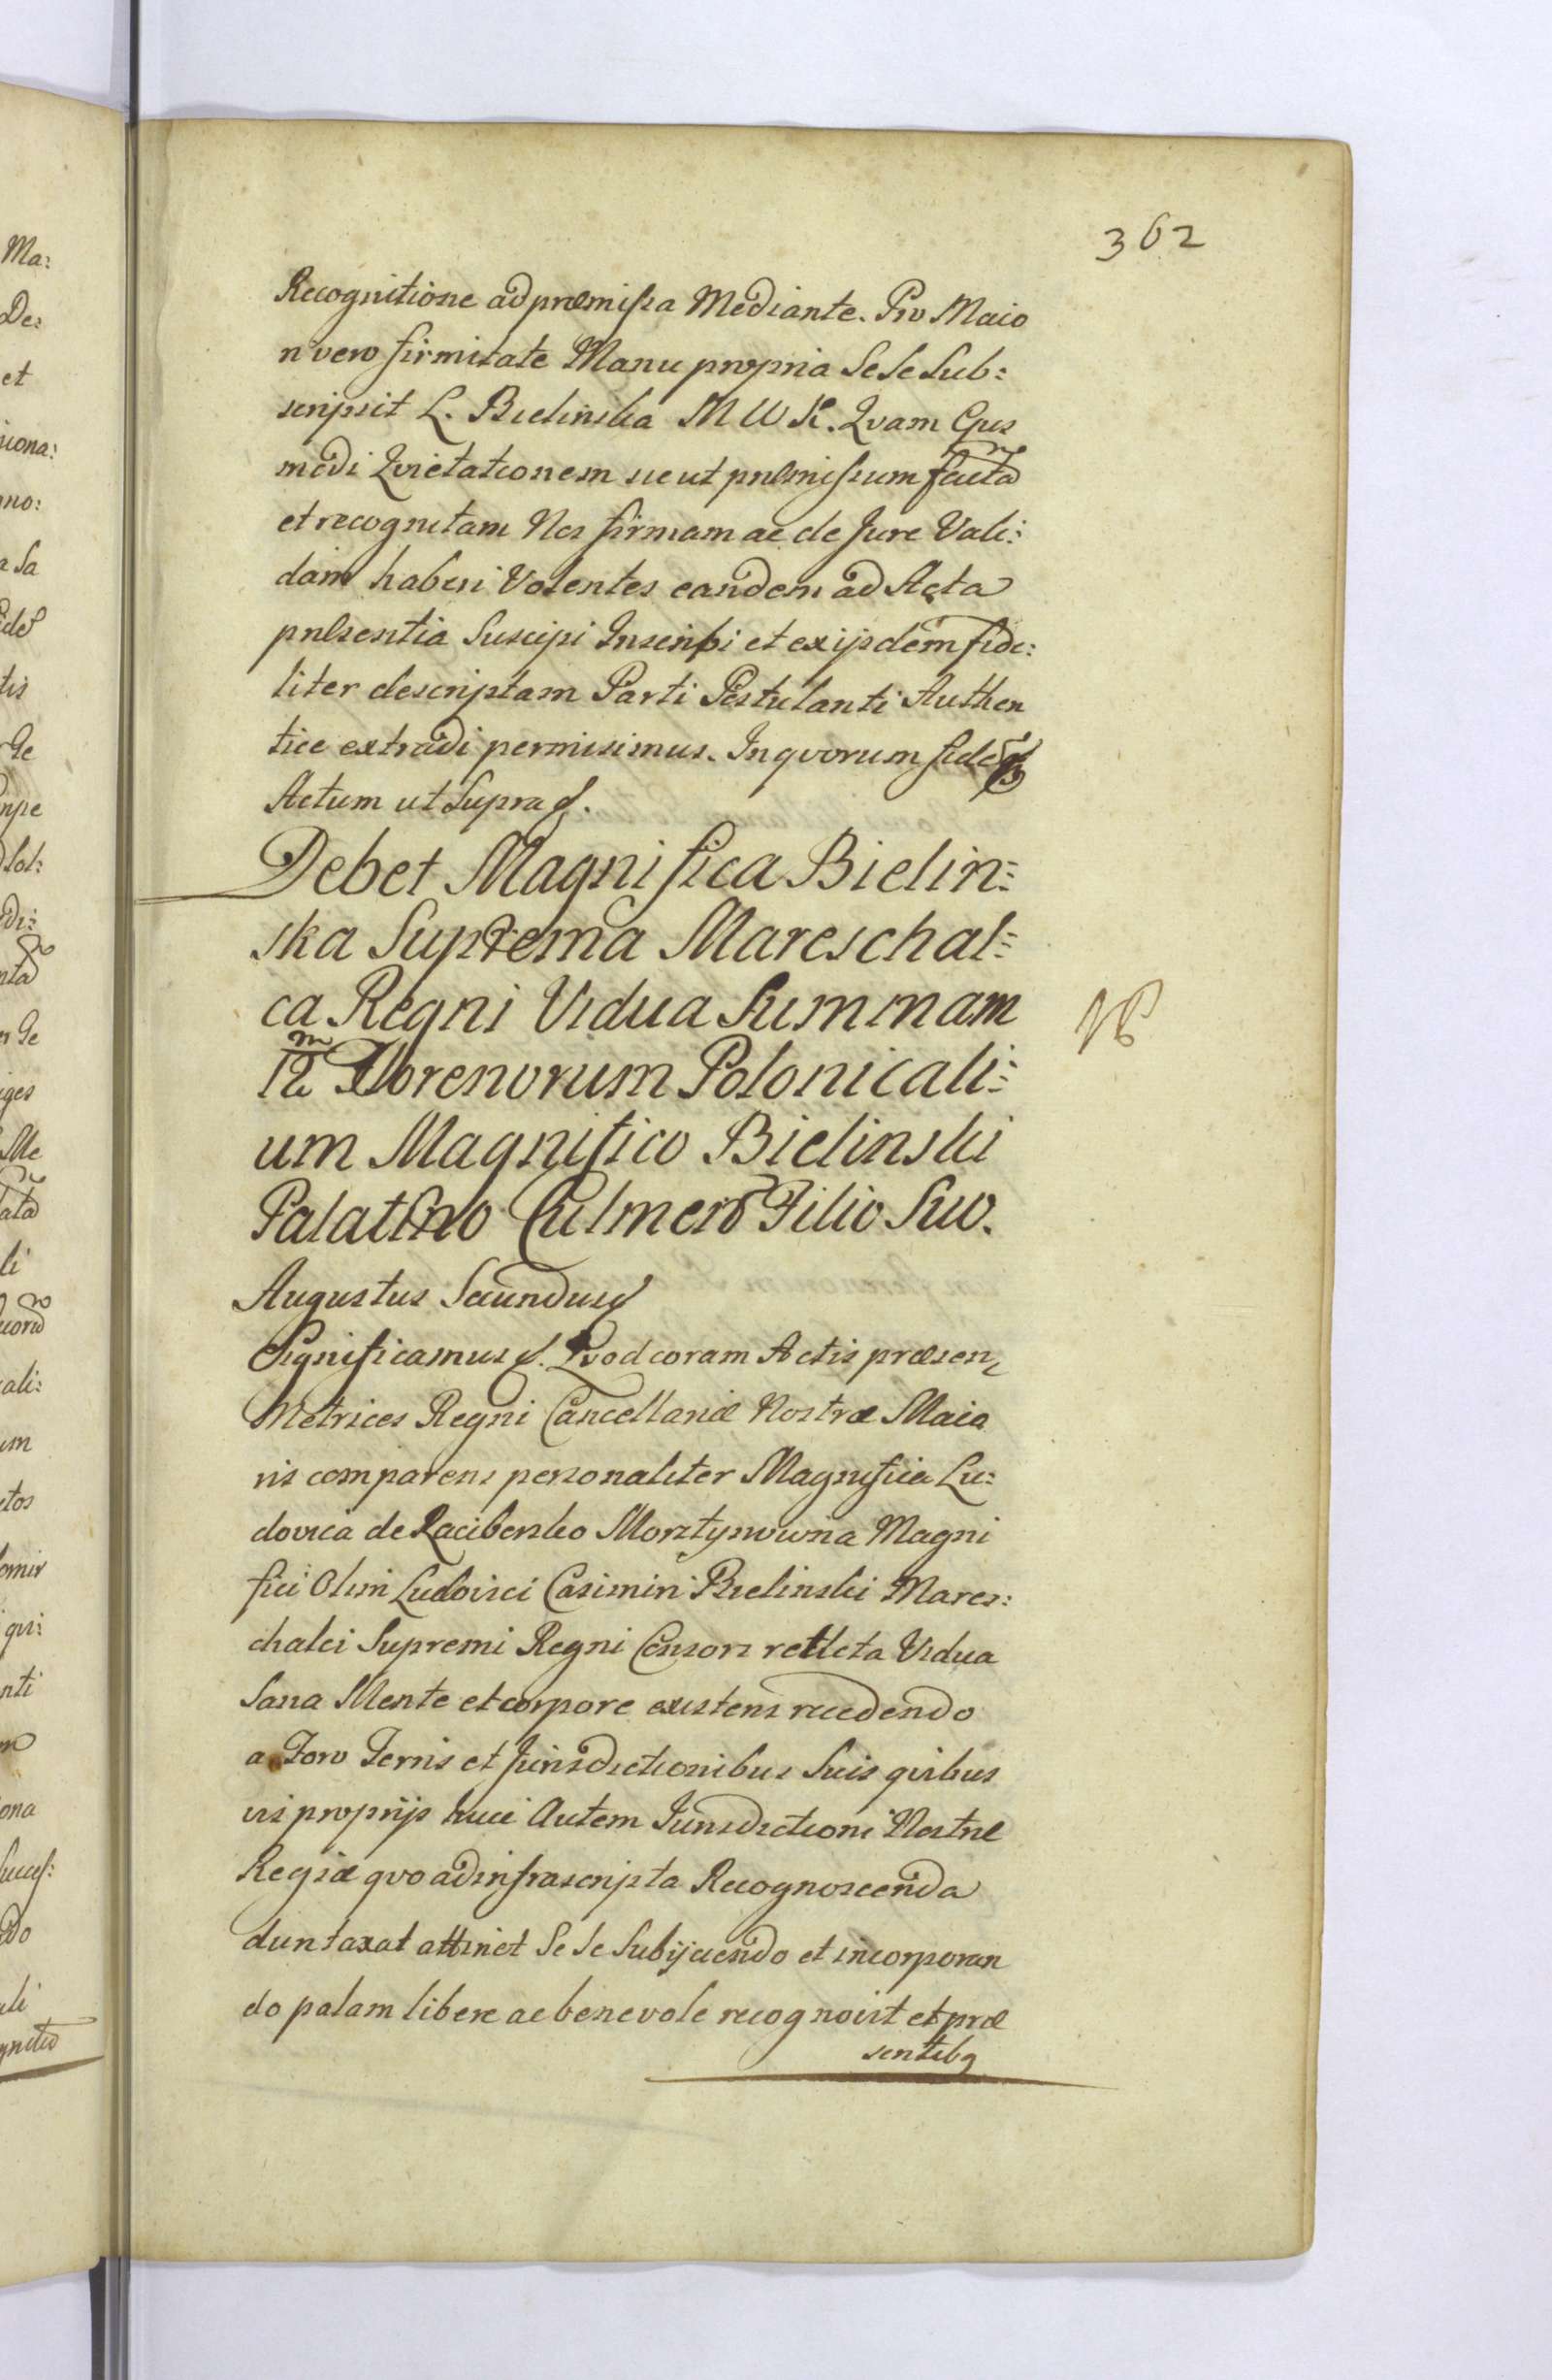 362
Recognitione ad præmissa Mediante. Pro Maio
ri vero firmitate Manu propria Se Se Sub:
scripsit L. Bielinska M W K. Qvam Ejus
modi Qvietationem sicut præmissum factã
et recognitam Nos firmam ac de Jure Vali:
dam haberi Volentes eandem ad Acta
præsentia Suscipi Inscribi et ex ijsdem fide:
liter descriptam Parti Postulanti Authen
tice extradi permisimus. In qvorum fidẽ
Actum ut Supra
Debet Magnifica Bielin:
ska Suprema Mareschal:
ca Regni Vidua Summam
12 m Florenorum Polonicali:
um Magnifico Bielinski
Palatino Culmen Filio Suo.
NB
Augustus Secundus
Significamus Qvod coram Actis præsen
Metrices Regni Cancellariæ Nostræ Maio
ris comparens personaliter Magnifica Lu:
dovica de Raciborsko Morztynowna Magni
fici Olim Ludovici Casimiri Bielinski Mares:
chalci Supremi Regni Consors relicta Vidua
Sana Mente et corpore existens recedendo
a Foro Terris et Jurisdictionibus Suis qvibus
vis proprijs huic Autem Jurisdictioni Nostræ
Regiæ qvo ad infrascripta Recognoscenda
duntaxat attinet Se Se Subijciendo et incorporan
do palam libere ac benevole recognovit et præ
sentibq